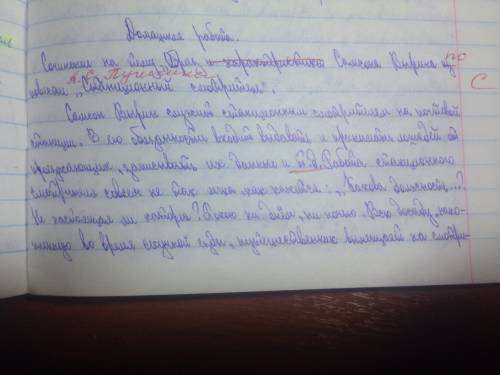 Домашняя работа.
Сочинение на тему „Образ и характеристика Самсона Вырина из по
А. С. Пушкина
вести „Станционный смотритель".
Самсон Вырин служит станционным смотрителем на почтовой
станции. В его обязанности входит выдавать и принимать лошадей от
приезжающих, записывать их данные и т.д. Работа станционного
смотрителя совсем не так легка, как кажется: „Какова должность...?
Не настоящая ли каторга? Покою ни днём, ни ночью. Всю досаду, нако-
пленную во время скучной езды, путешественник вымещает на смотри-
С